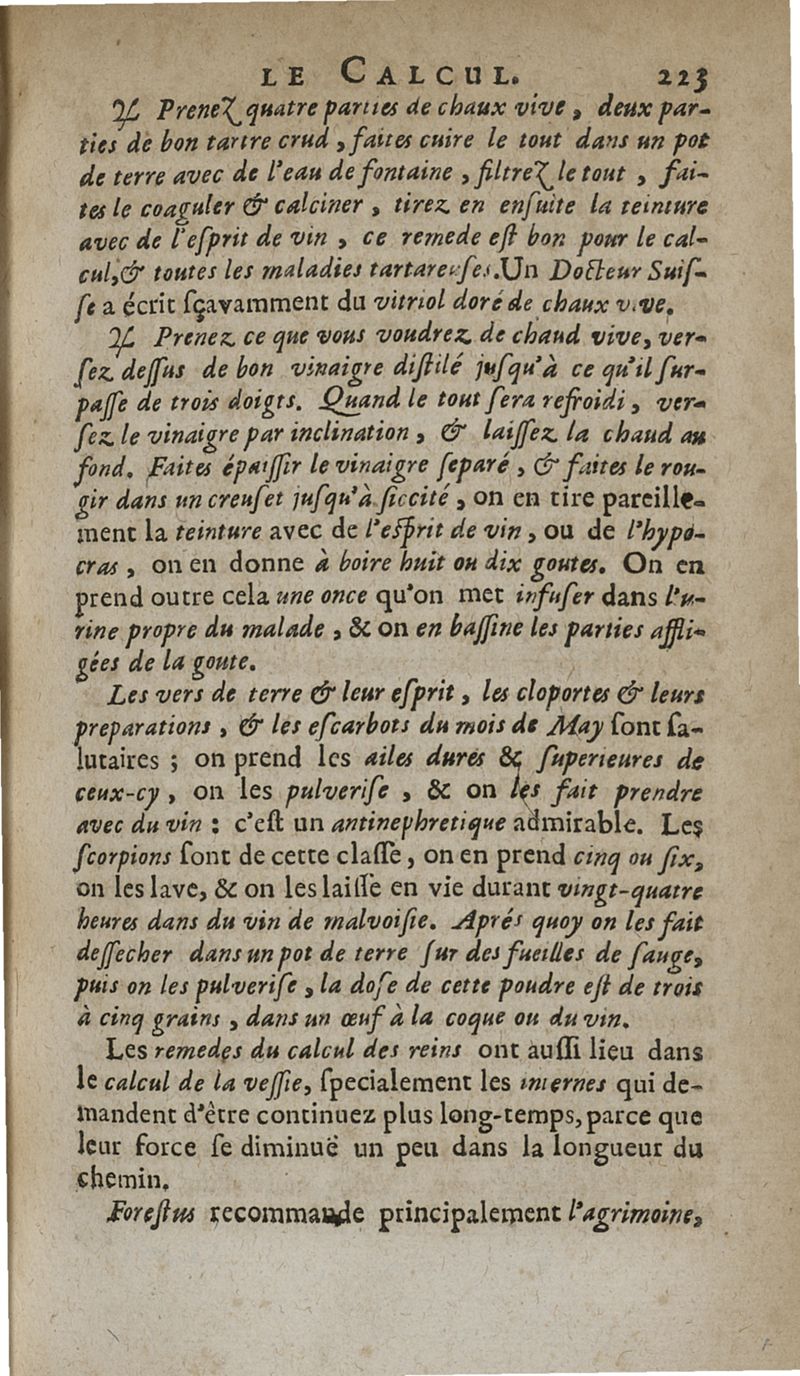 LE CALCUL. 223
♃ Prenez quatre parties de chaux vive, deux par-
ties de bon tartre crud, faites cuire le tout dans un pot
de terre avec de l'eau de fontaine, filtrez le tout, fai-
tes le coaguler & calciner, tirez en enſuite la teinture
avec de l'eſprit de vin, ce remede eſt bon pour le cal-
cul, & toutes les maladies tartareuſes. Un Docteur Suiſ-
ſe a écrit ſçavamment du vitriol doré de chaux vive.
♃ Prenez ce que vous voudrez de chaud vive, ver-
ſez deſſus de bon vinaigre diſtilé juſqu'à ce qu'il ſur-
paſſe de trois doigts. Quand le tout ſera refroidi, ver-
ſez le vinaigre par inclination, & laiſſez la chaud au
fond. Faites épaiſſir le vinaigre ſeparé, & faites le rou-
gir dans un creuſet juſqu'à ſiccité, on en tire pareille-
ment la teinture avec de l'eſprit de vin, ou de l'hypo-
cras, on en donne à boire huit ou dix goutes. On en
prend outre cela une once qu'on met infuſer dans l'u-
rine propre du malade, & on en baſſine les parties affli-
gées de la goute.
Les vers de terre & leur eſprit, les cloportes & leurs
preparations, & les eſcarbots du mois de May ſont ſa-
lutaires ; on prend les ailes dures & ſuperieures de
ceux-cy, on les pulveriſe, & on les fait prendre
avec du vin : c'eſt un antinephretique admirable. Les
ſcorpions ſont de cette claſſe, on en prend cinq ou ſix,
on les lave, & on les laiſſe en vie durant vingt-quatre
heures dans du vin de malvoiſie. Aprés quoy on les fait
deſſecher dans un pot de terre ſur des fueilles de ſauge,
puis on les pulveriſe, la doſe de cette poudre eſt de trois
à cinq grains, dans un œuf à la coque ou du vin.
Les remedes du calcul des reins ont auſſi lieu dans
le calcul de la veſſie, ſpecialement les internes qui de-
mandent d'être continuez plus long-temps, parce que
leur force ſe diminuë un peu dans la longueur du
chemin.
Foreſtus recommande principalement l'agrimoine,